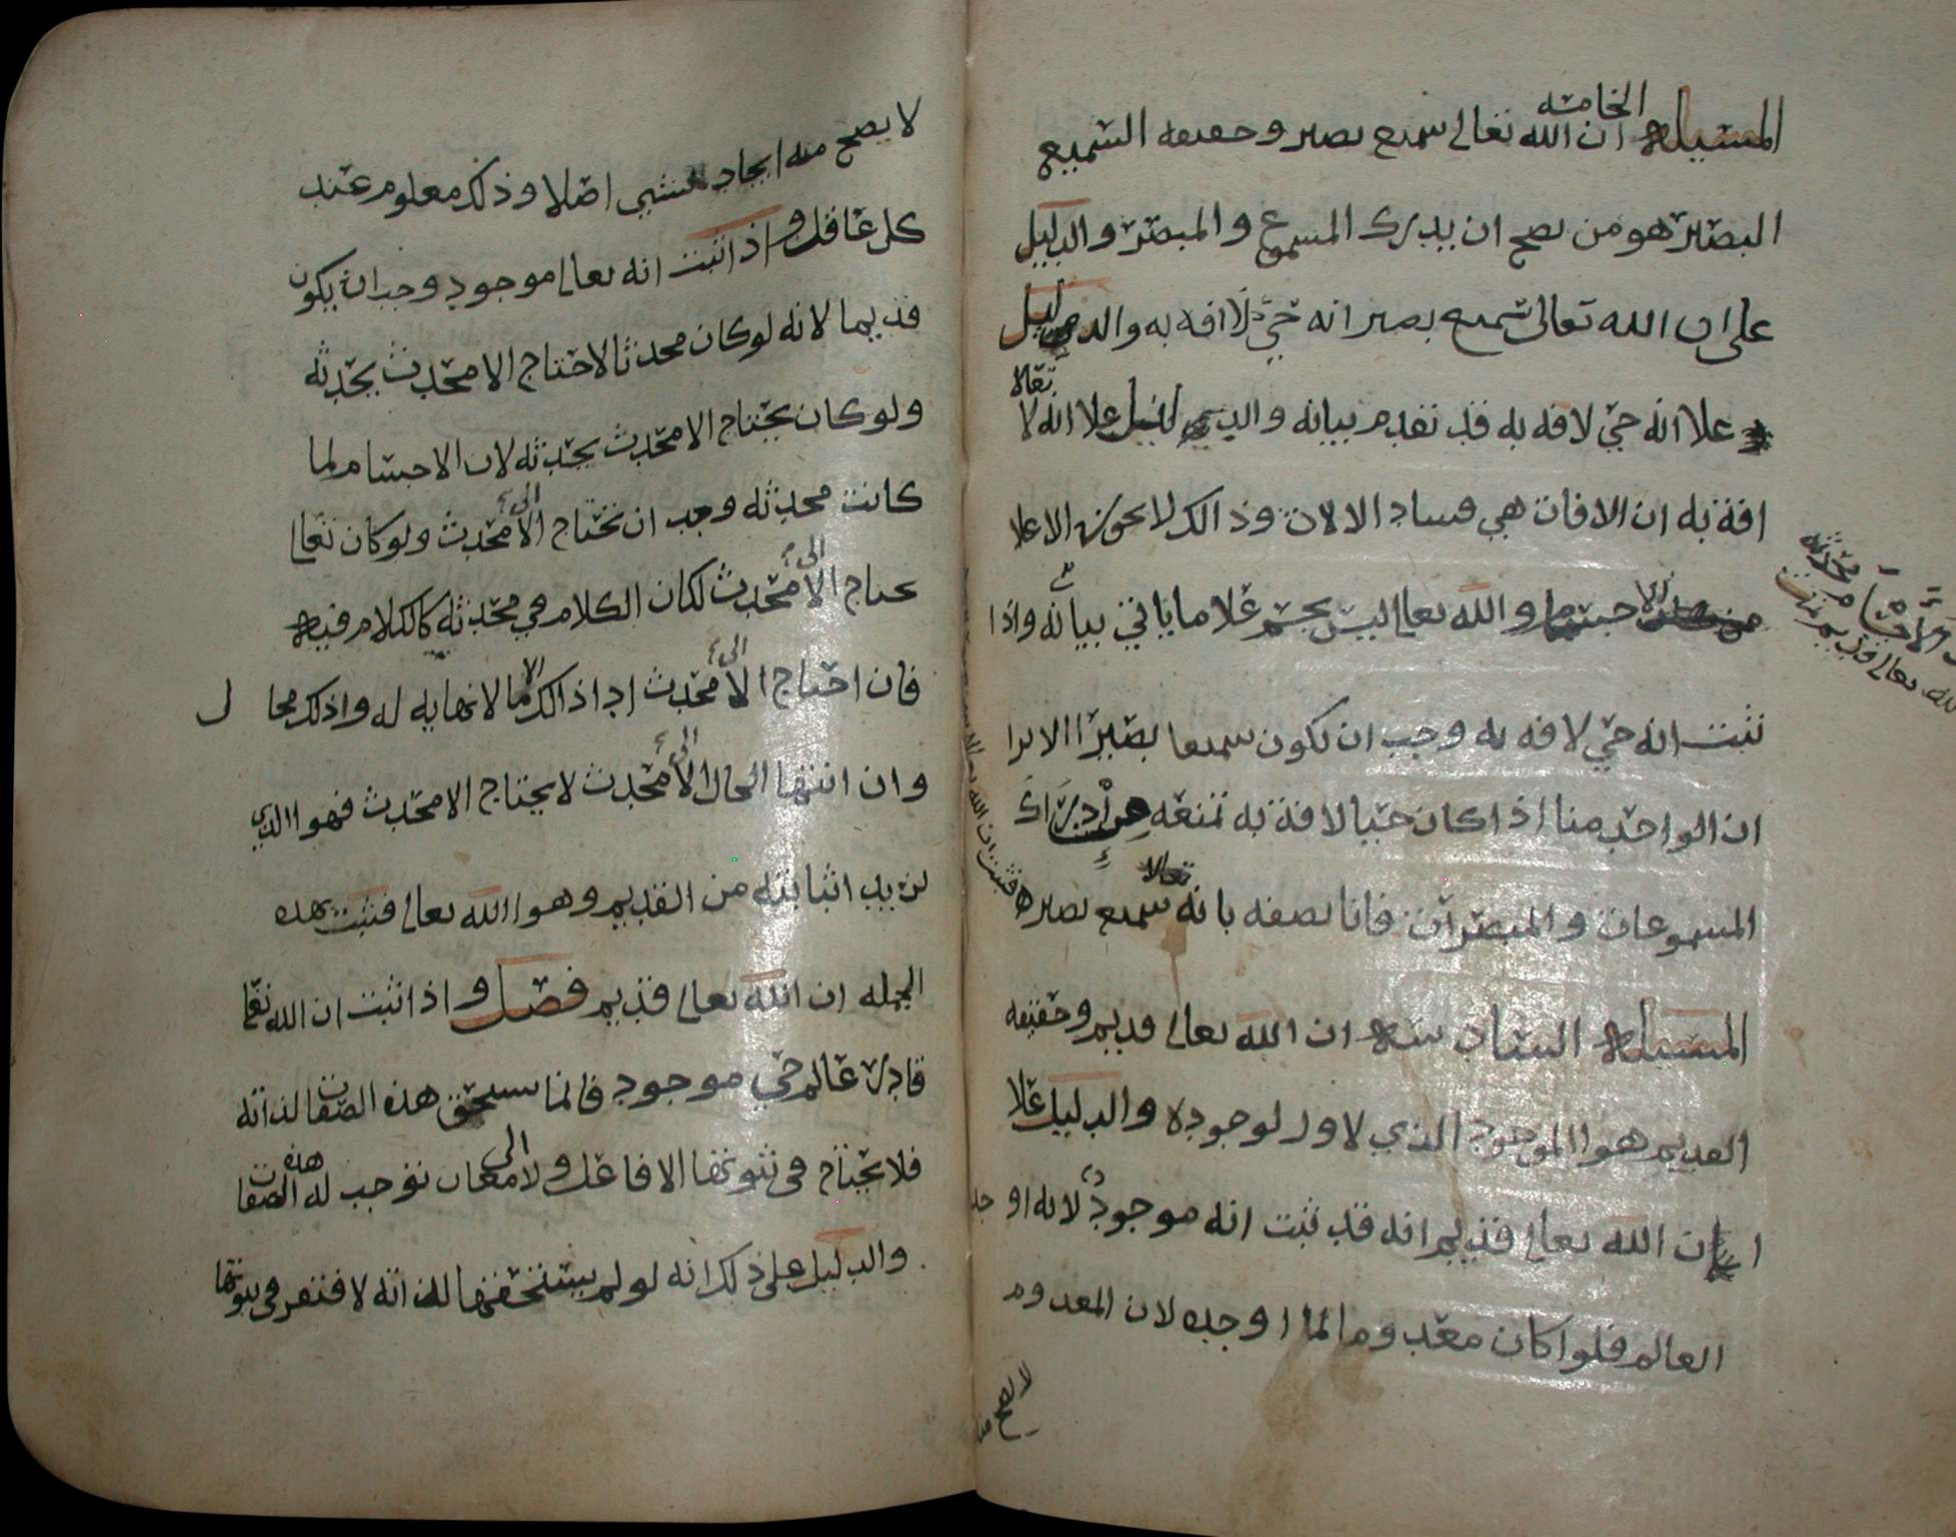 المسئلة الخامسة ان الله تعالى سميع بصير وحقيقه السميع
البصير هو من يصح ان يدرك المسموع والمبصر والدليل
على ان الله تعالى سميع بصير انه حي لا افه به والدليل
علا انه حي لافه به قد تقدم بيانه والدليل علا انه تعالا لا
افة به ان الافات هي فساد الالات وذالك لا يجوز الا علا
الاجسام والله تعالى ليس بجسم علا ما ياتي بيانه واذا
ثبت انه حي لافه به وجب ان يكون سميعا بصيرا الا ترا
ان الواحد منا اذا كان حيا لا افة به تمنعه من ادراك
المسموعات والمبصرات فانا نصفه بانه سميع بصير
المسئلة السادسة ان الله تعالى قديم وحقيقه
القديم هوا الموجود الذي لا اول لوجوده والدليل علا
ان الله تعالى قديم انه قد ثبت انه موجود لانه اوجد
العالم فلوا كان معدوما لما اوجده لان المعدوم
لا يصح منه
لا يصح منه ايجاد لشي اصلا وذلك معلوم عند
كل عاقل واذا ثبت انه تعالى موجود وجب ان يكون
قديما لانه لو كان محدثا لاحتاج الا محدث يحدثه
ولو كان يحتاج الا محدث يحدثه لان الاجسام لما
كانت محدثه وجب ان تحتاج الى محدث ولو كان تعالى
يحتاج الى محدث لكان الكلام في محدثه كالكلام فيه
فان احتاج الى محدث ادا ذالك الا ما لا نهايه له وذلك محال
وان انتها الحال الى محدث لا يحتاج الا محدث فهوا الذي
نريد اثباته من القديم وهوا الله تعالى فثبت بهذه
الجمله ان الله تعالى قديم فصل واذا ثبت ان الله تعالى
قادر عالم حي موجود فانما يستحق هذه الصفات لذاته
فلا يحتاج في ثبوتها الا فاعل ولا الى معان توجب له هذه الصفات
والدليل على ذلك انه لو لم يستحقها لذاته لافتقر في ثبوتها